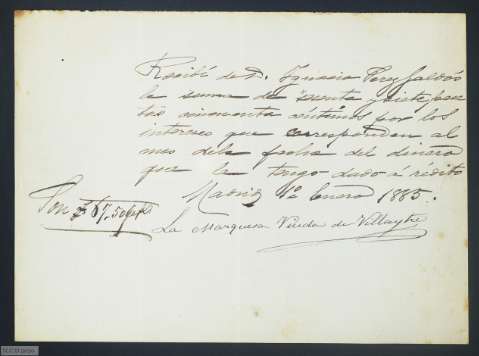 Recibí de D. Ignacio Perez Galdós
la suma de sesenta y siete pese
tas cincuenta céntimos por los
intereses que corresponden al
mes de la fecha del dinero
que le tengo dado a rédito
Madrid 1º Enero 1885.
Son # 67,50 ptas
La Marquesa Viuda de